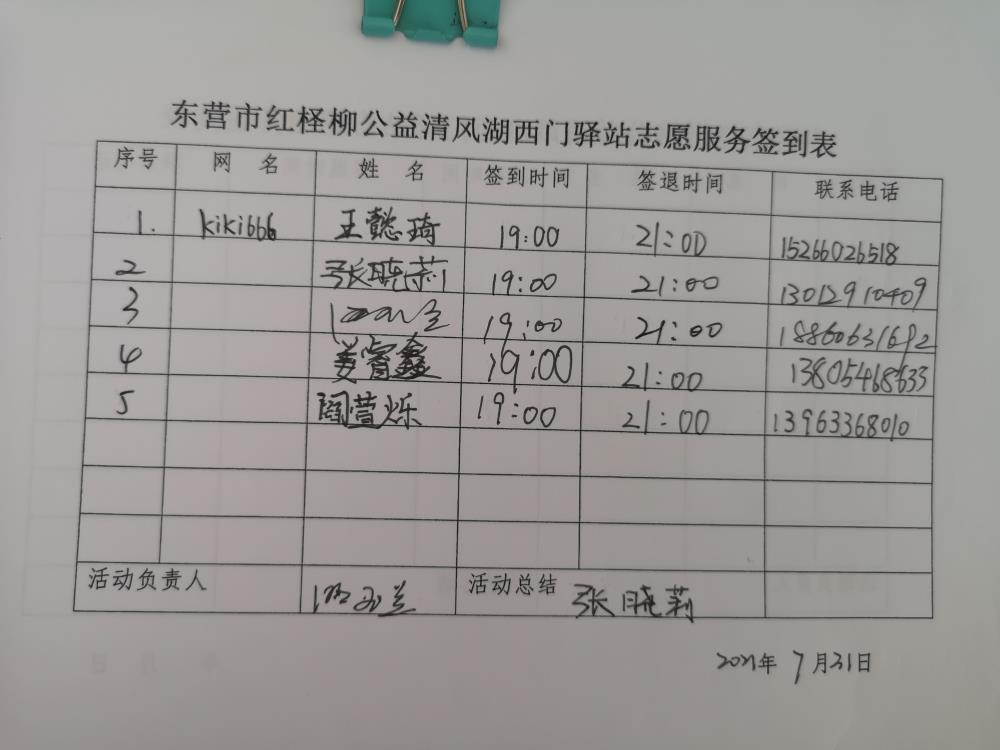 东营市红柽柳公益清风湖西门驿站志愿服务签到表
序号 网 名 姓 名 签到时间 签退时间 联系电话
1. kiki666 王懿琦 19:00 21:00 15266026518
2 张晓莉 19:00 21:00 13012910409
3 19:00 21:00 18860631692
4 姜睿鑫 19:00 21:00 13805468633
5 阎萱烁 19:00 21:00 13963368010
活动负责人 活动总结 张晓莉
2021年 7月21日